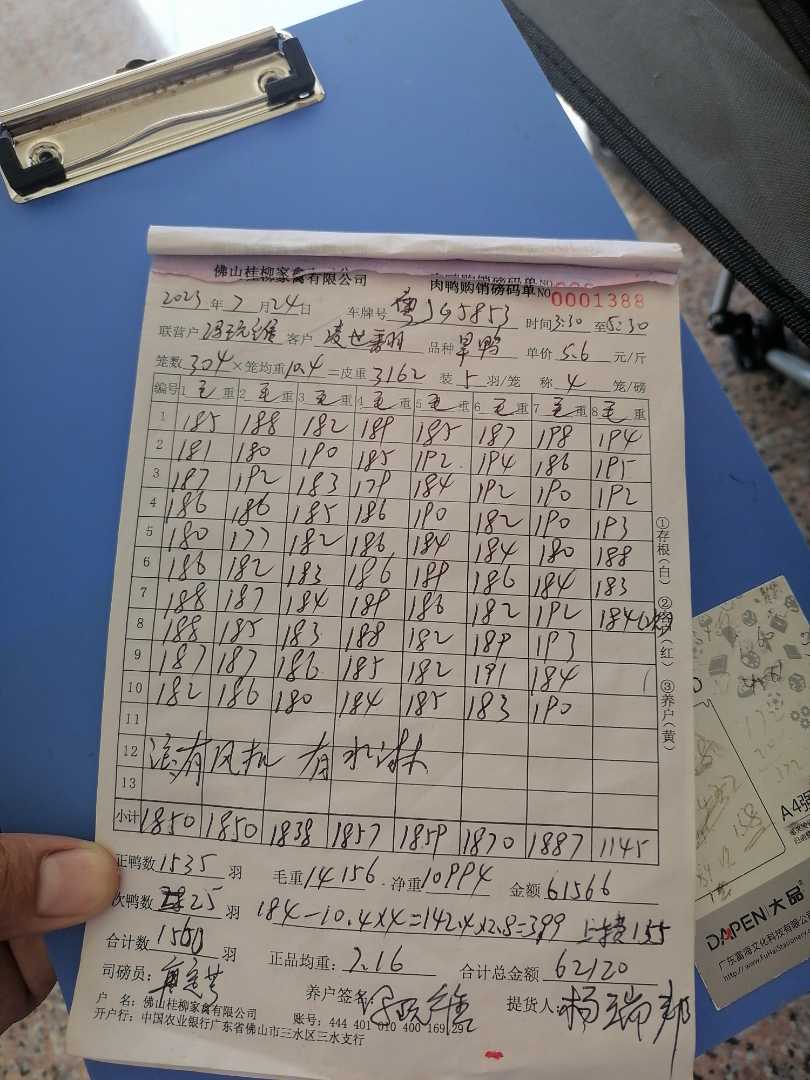 佛山桂柳家禽有限公司 肉鸭购销磅码单 NO 0001388
2023年7月24日 车牌号 粤J G5853 时间3:30至5:30
联营户 客户 凌世 品种 旱鸭 单价5.6元/斤
笼数304×笼均重10.4=皮重3162 装5羽/笼 称4笼/磅
编号 1毛重 2毛重 3毛重 4毛重 5毛重 6毛重 7毛重 8毛重
1 185 188 182 189 185 187 198 194
2 181 180 190 185 192 194 186 195
3 187 192 183 179 184 192 190 192
4 186 186 185 186 190 182 190 193
5 180 177 182 186 184 184 180 188
6 186 182 183 186 189 186 184 183
7 188 187 184 189 186 182 192 184
8 188 185 183 188 182 189 193
9 187 187 186 185 182 191 184
10 182 186 180 184 185 183 190
11
12 没有风机 有水淋
13
小计 1850 1850 1838 1857 1859 1870 1887 1145
正鸭数1535羽 毛重14156 净重10994 金额61566
次鸭数25羽 184-10.4×4=142.4×2.8=399 155
合计数1560羽 正品均重:7.16 合计总金额62120
司磅员: 养户签名: 提货人:杨瑞邦
户 名:佛山桂柳家禽有限公司 账号:444 401 010 400 169 292
开户行:中国农业银行广东省佛山市三水区三水支行
①存根(白) ②(红) ③养户(黄)
A4强
DAPEN 大品
广东富海文化科技有限公
http://www.FuHaiStationery.c